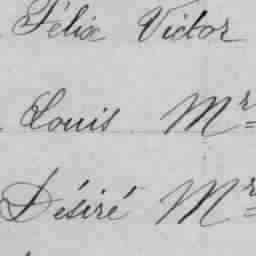 Félix Victor
Louis Mr
Désiré Mr